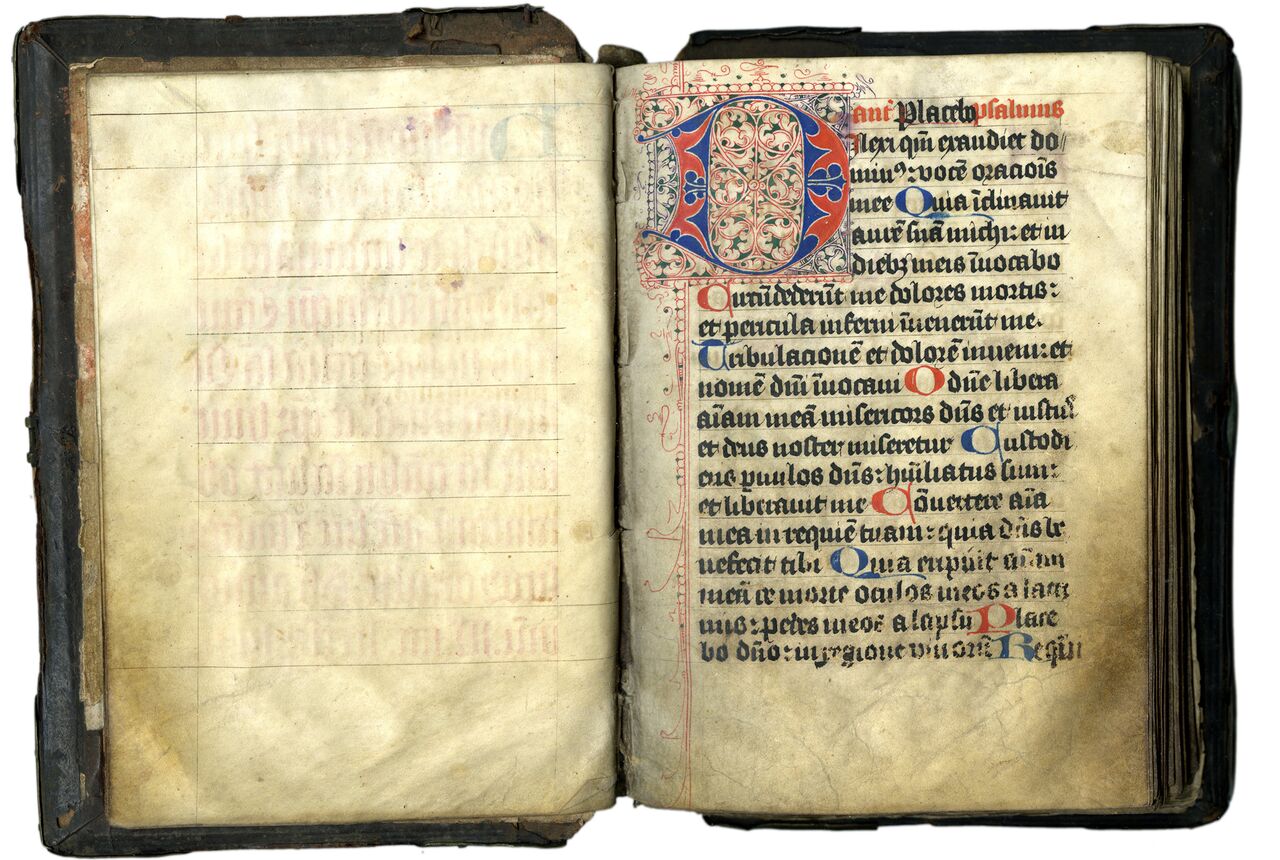 ant̄ Placebo psalmus
Dilexi qm̄ exaudiet do⸗
minꝰ: vocē oraciōis
mee Quia īclinauit
aurē suā michi: et in
diebꝫ meis īuocabo
Circūdederūt me dolores mortis:
et pericula inferni īuenerūt me.
Tribulacionē et dolorē inueni: et
nomē dn̄i īuocaui O dn̄e libera
aīam meā misericors dn̄s et iustꝰ
et deus noster miseretur Custodi
ens puulos dn̄s: hūiliatus sum:
et liberauit me Cōuertere aīa
mea in requiē tuam: quia dn̄s be
nefecit tibi Quia eripuit aīam
meā de morte oculos meos a lacri
mis: pedes meos a lapsu Place
bo dn̄o: in regione viuorū Requi